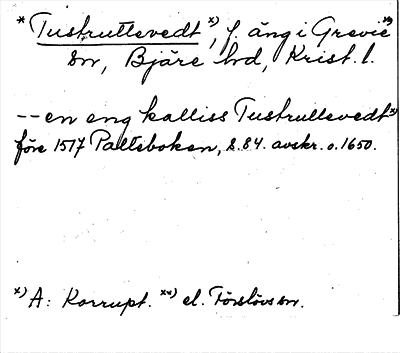 * Tustruttevedt x), f. äng i Grevie xx)
sn, Bjäre hd, Krist. l.
-- en eng kalliss Tustruttevedt x)
före 1517 Palteboken, s. 84. avskr. o. 1650.
x) A: Korrupt. xx) el. Förslövs sn.